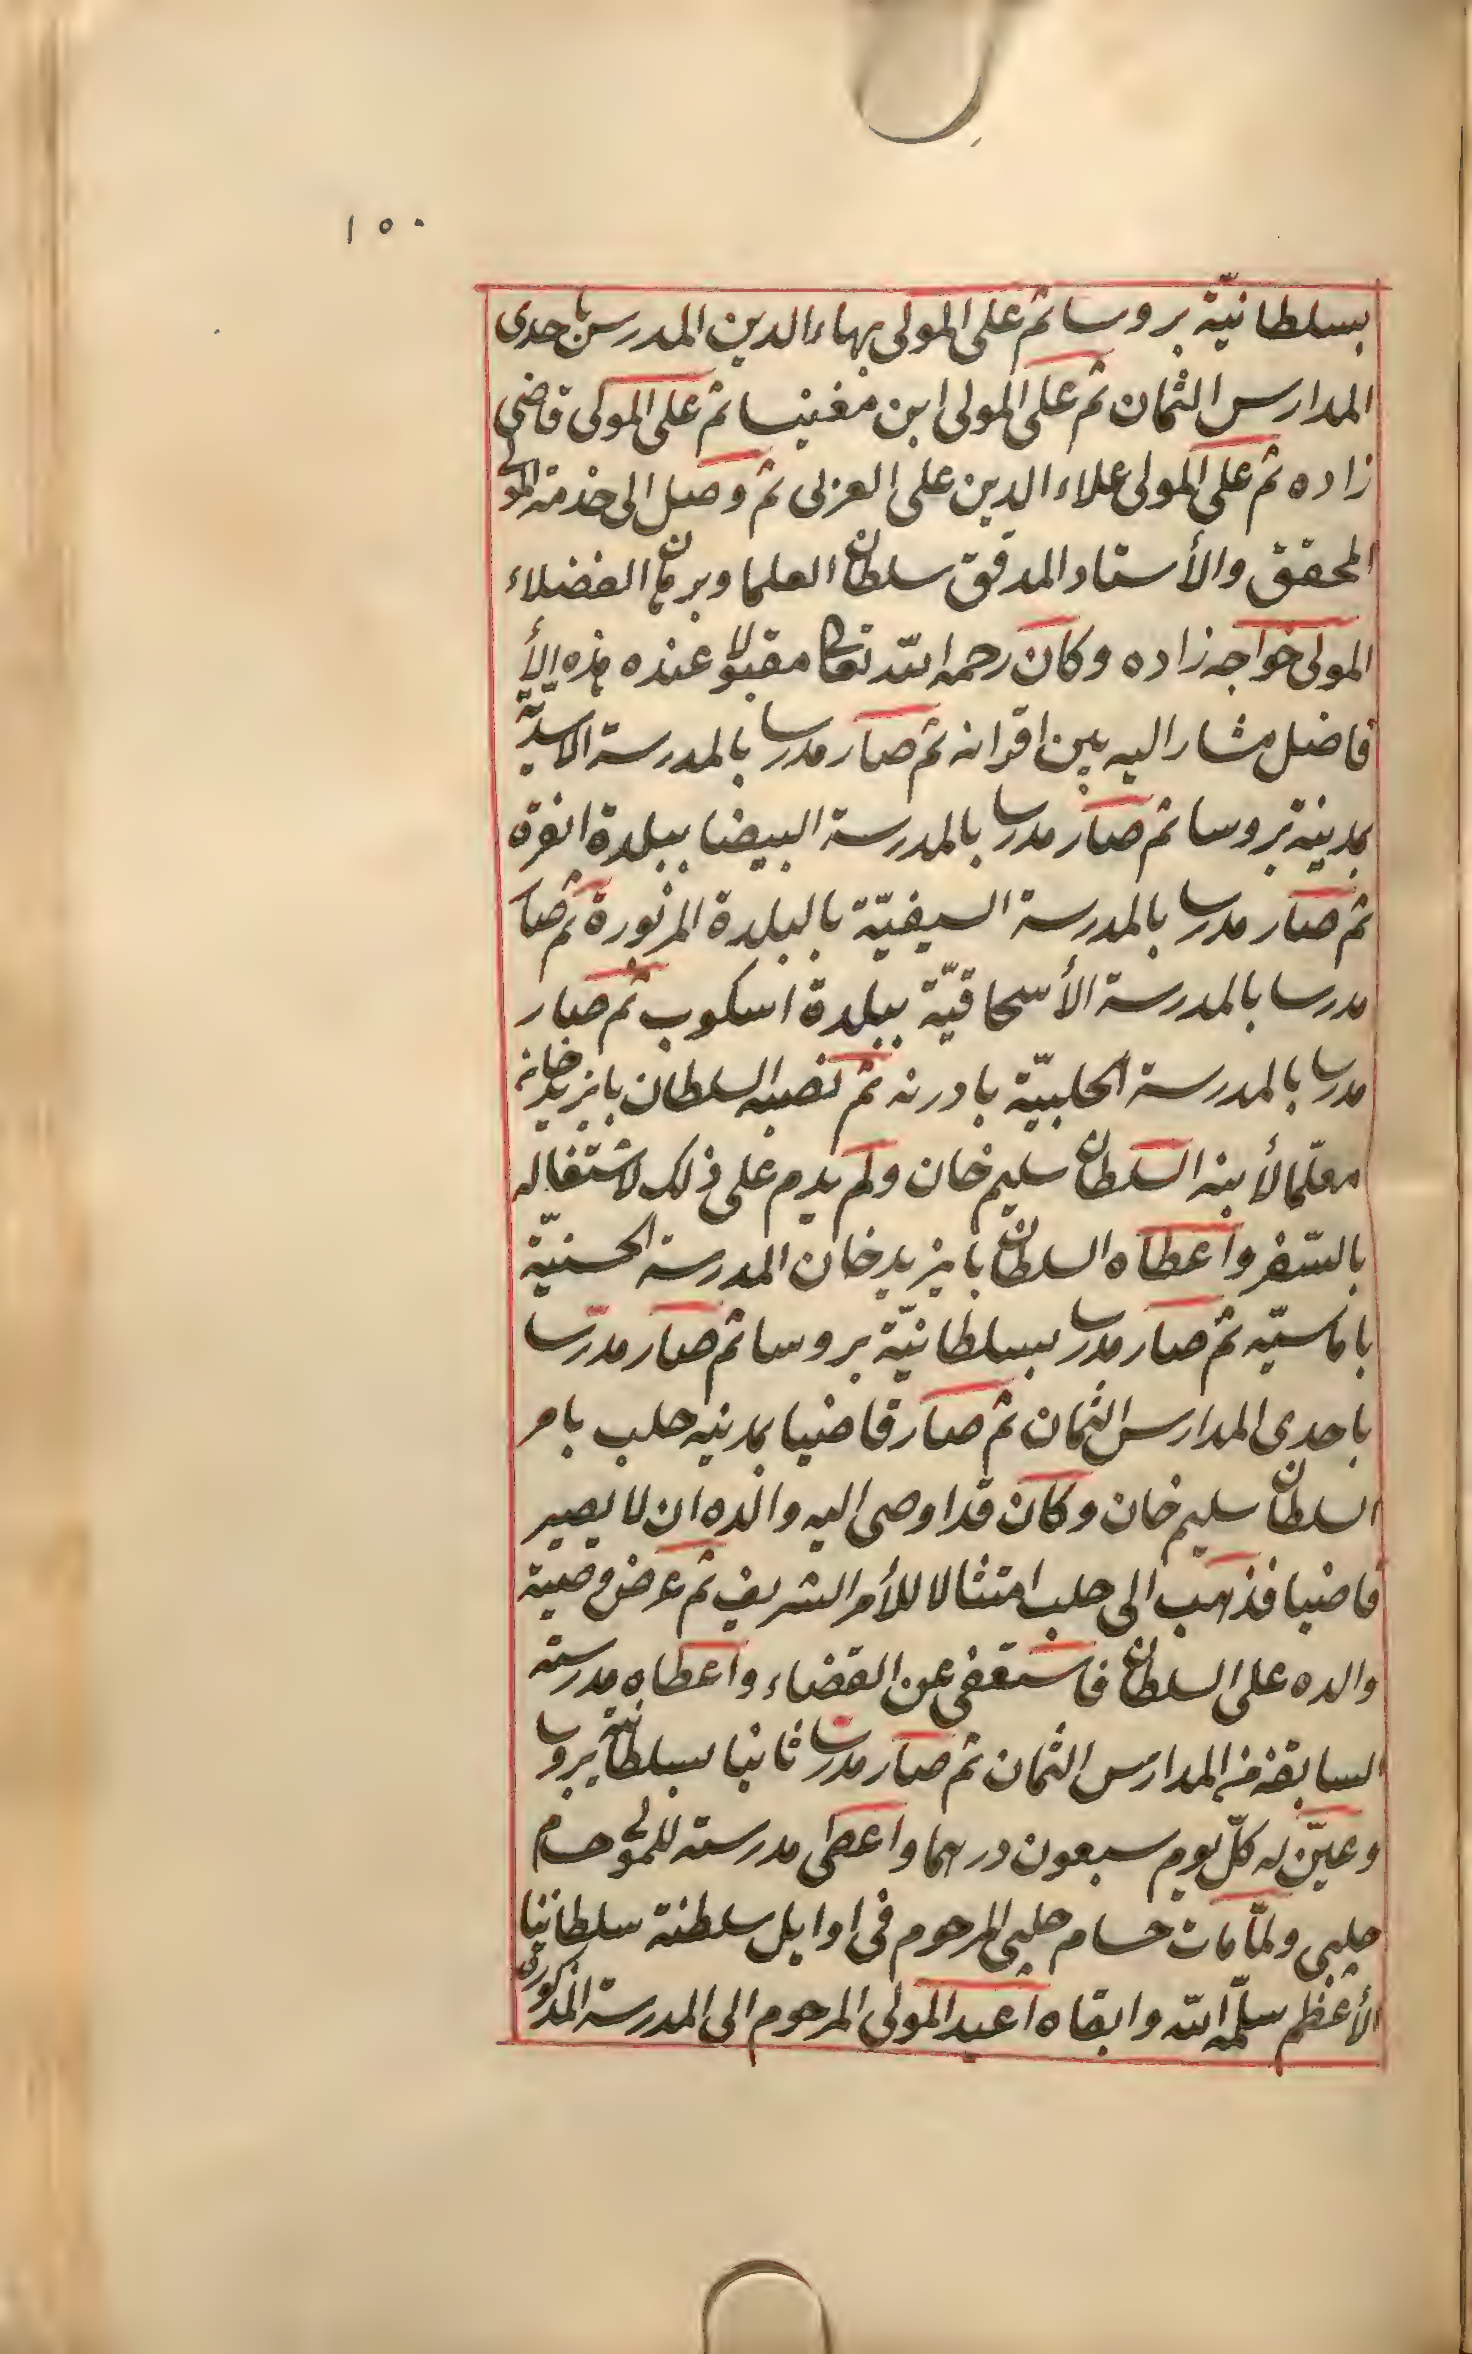 ١٥٠
بسلطانيّة بروسا ثم على المولى بهاء الدين المدرس باحدى
المدارس الثمان ثم على المولى ابن مغنيسا ثم على المولى قاضي
زاده ثم على المولى علاء الدين على العربى ثم وصل الى خدمة المولى
المحقق والأستاد المدقق سلطان العلما وبرهان الفضلاء
المولى خواجه زاده وكان رحمه الله تعالى مقبولا عنده هذه الأ
فاضل مشارا اليه بين اقرانه ثم صار مدرسا بالمدرسة الاسديّة
بمدينة بروسا ثم صار مدرسا بالمدرسة البيضا ببلدة انقرة
ثم صار مدرسا بالمدرسة السيفيّة بالبلدة المزبورة ثم صار
مدرسا بالمدرسة الأسحاقيّة ببلدة اسكوب ثم صار
مدرسا بالمدرسة الحلبيّة بادرنه ثم نصبه السلطان بايزيد خان
معلّما لأبنه السلطان سليم خان ولم يدم على ذلك لاشتغاله
بالسّفر واعطاه السلطان بايزيد خان المدرسة الحسنيّة
باماسيّه ثم صار مدرسا بسلطانيّة بروسا ثم صار مدرّسا
باحدى المدارس الثمان ثم صار قاضيا بمدينه حلب بامر
السلطان سليم خان وكان قد اوصى اليه والده ان لا يصير
قاضيا فذهب الى حلب امتثالا للأمر الشريف ثم عرض وصية
والده على السلطان فاستعفى عن القضاء واعطاه مدرسته
السابقة من المدارس الثمان ثم صار مدرسا ثانيا بسلطانية بروسا
وعيّن له كلّ يوم سبعون درهما واعطى مدرسته للمولى حسام
چلبى ولمّا مات حسام چلبى المرحوم فى اوايل سلطنة سلطاننا
الأعظم سلّمه الله وابقاه اعيد المولى المرحوم الى المدرسة المذكورة